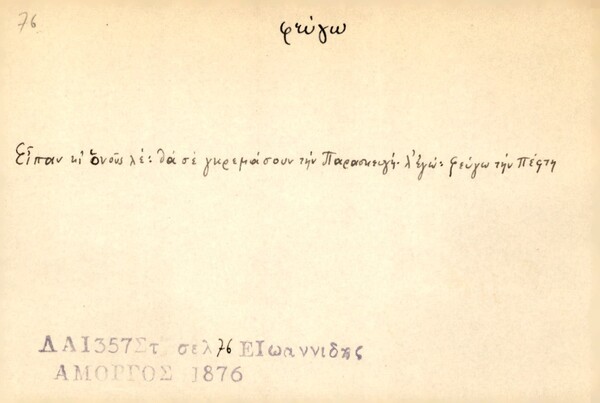 76
φεύγω
Εἶπαν κι ὁνοῦς λέ: θά σέ γκρεμάσουν τήν Παρασκευγή. λ' ἐγώ: φεύγω τήν Πέφτη
ΛΑΙ357Στ σελ 76 ΕΙωαννιδης
ΑΜΟΡΓΟΣ 1876